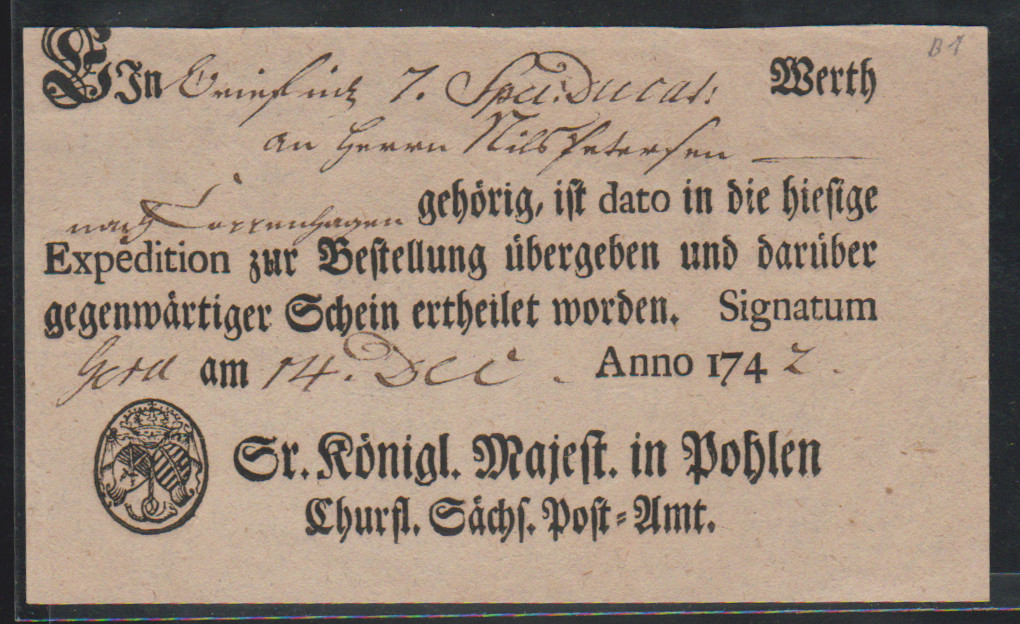 B 1
EIn Brief mit 7. Spec: Ducat: Werth
an Herrn Nils Petersen
nach Coppenhagen gehörig, ist dato in die hiesige
Expedition zur Bestellung übergeben und darüber
gegenwärtiger Schein ertheilet worden. Signatum
Gera am 14. Dec. Anno 1742.
Sr. Königl. Majest. in Pohlen
Churfl. Sächs. Post-Amt.